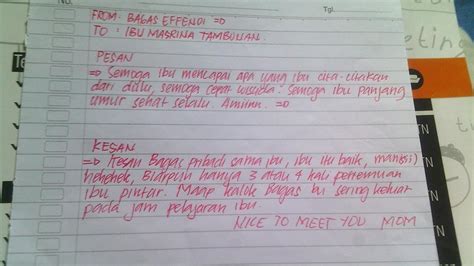 No.
Tgl.
FROM : BAGAS EFFENDI =D
TO : IBU MASRINA TAMBUNAN.
PESAN
=> Semoga ibu mencapai apa yang ibu cita-citakan
dari dulu, semoga cepat wisuda. Semoga ibu panjang
umur sehat selalu. Amiinn. =D
KESAN
=D Kesan Bagas pribadi sama ibu, ibu itu baik, manis;)
hehehek, Biarpun hanya 3 atau 4 kali pertemuan
ibu pintar. Maap kalok Bagas bu sering keluar
pada jam pelajaran ibu
NICE TO MEET YOU MOM